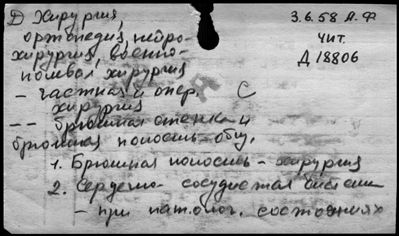 Д Хирургия,
ортопедия, нейро-
хирургия, военно-
полевая хирургия
- частная и опер.
хирургия
-- брюшная стенка и
брюшная полость-общ.
1. Брюшная полость - хирургия
2. Сердечно-сосудистая система
- при патолог. состояниях
3.6.58 А.Ф
Чит.
Д 18806
С